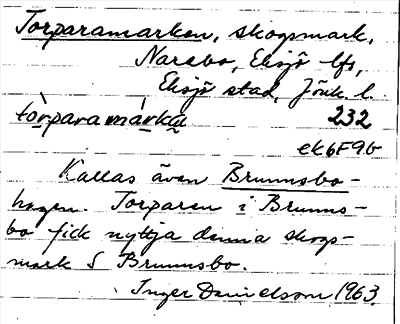 Torparamarken, skogsmark,
Narebo, Eksjö lfs,
Eksjö stad, Jönk. l.
tòrparamárka 232
ek6F9b
Kallas även Brunnsbo-
hagen. Torparen i Brunns-
bo fick nyttja denna skogs-
mark S Brunnsbo.
Inger Danielsson 1963.